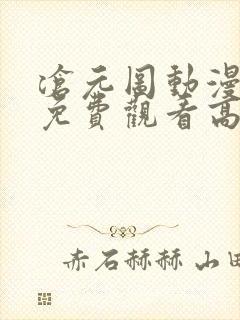 滄元圖動漫
免費觀看高
赤石赫赫 山田